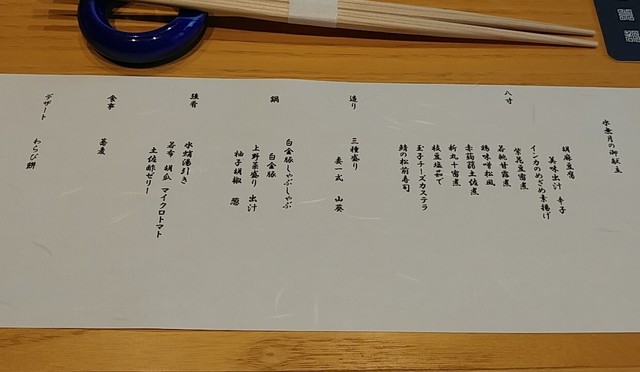 水無月の御献立
八寸
胡麻豆腐
美味出汁 辛子
インカのめざめ素揚げ
紫花豆蜜煮
若桃甘露煮
鶏味噌松風
赤蒟蒻土佐煮
新丸十蜜煮
枝豆塩茹で
玉子チーズカステラ
鯖の松前寿司
造り
三種盛り
妻一式 山葵
鍋
白金豚しゃぶしゃぶ
白金豚
上野菜盛り 出汁
柚子胡椒 葱
強肴
水蛸湯引き
若布 胡瓜 マイクロトマト
土佐酢ゼリー
食事
蕎麦
デザート
わらび餅